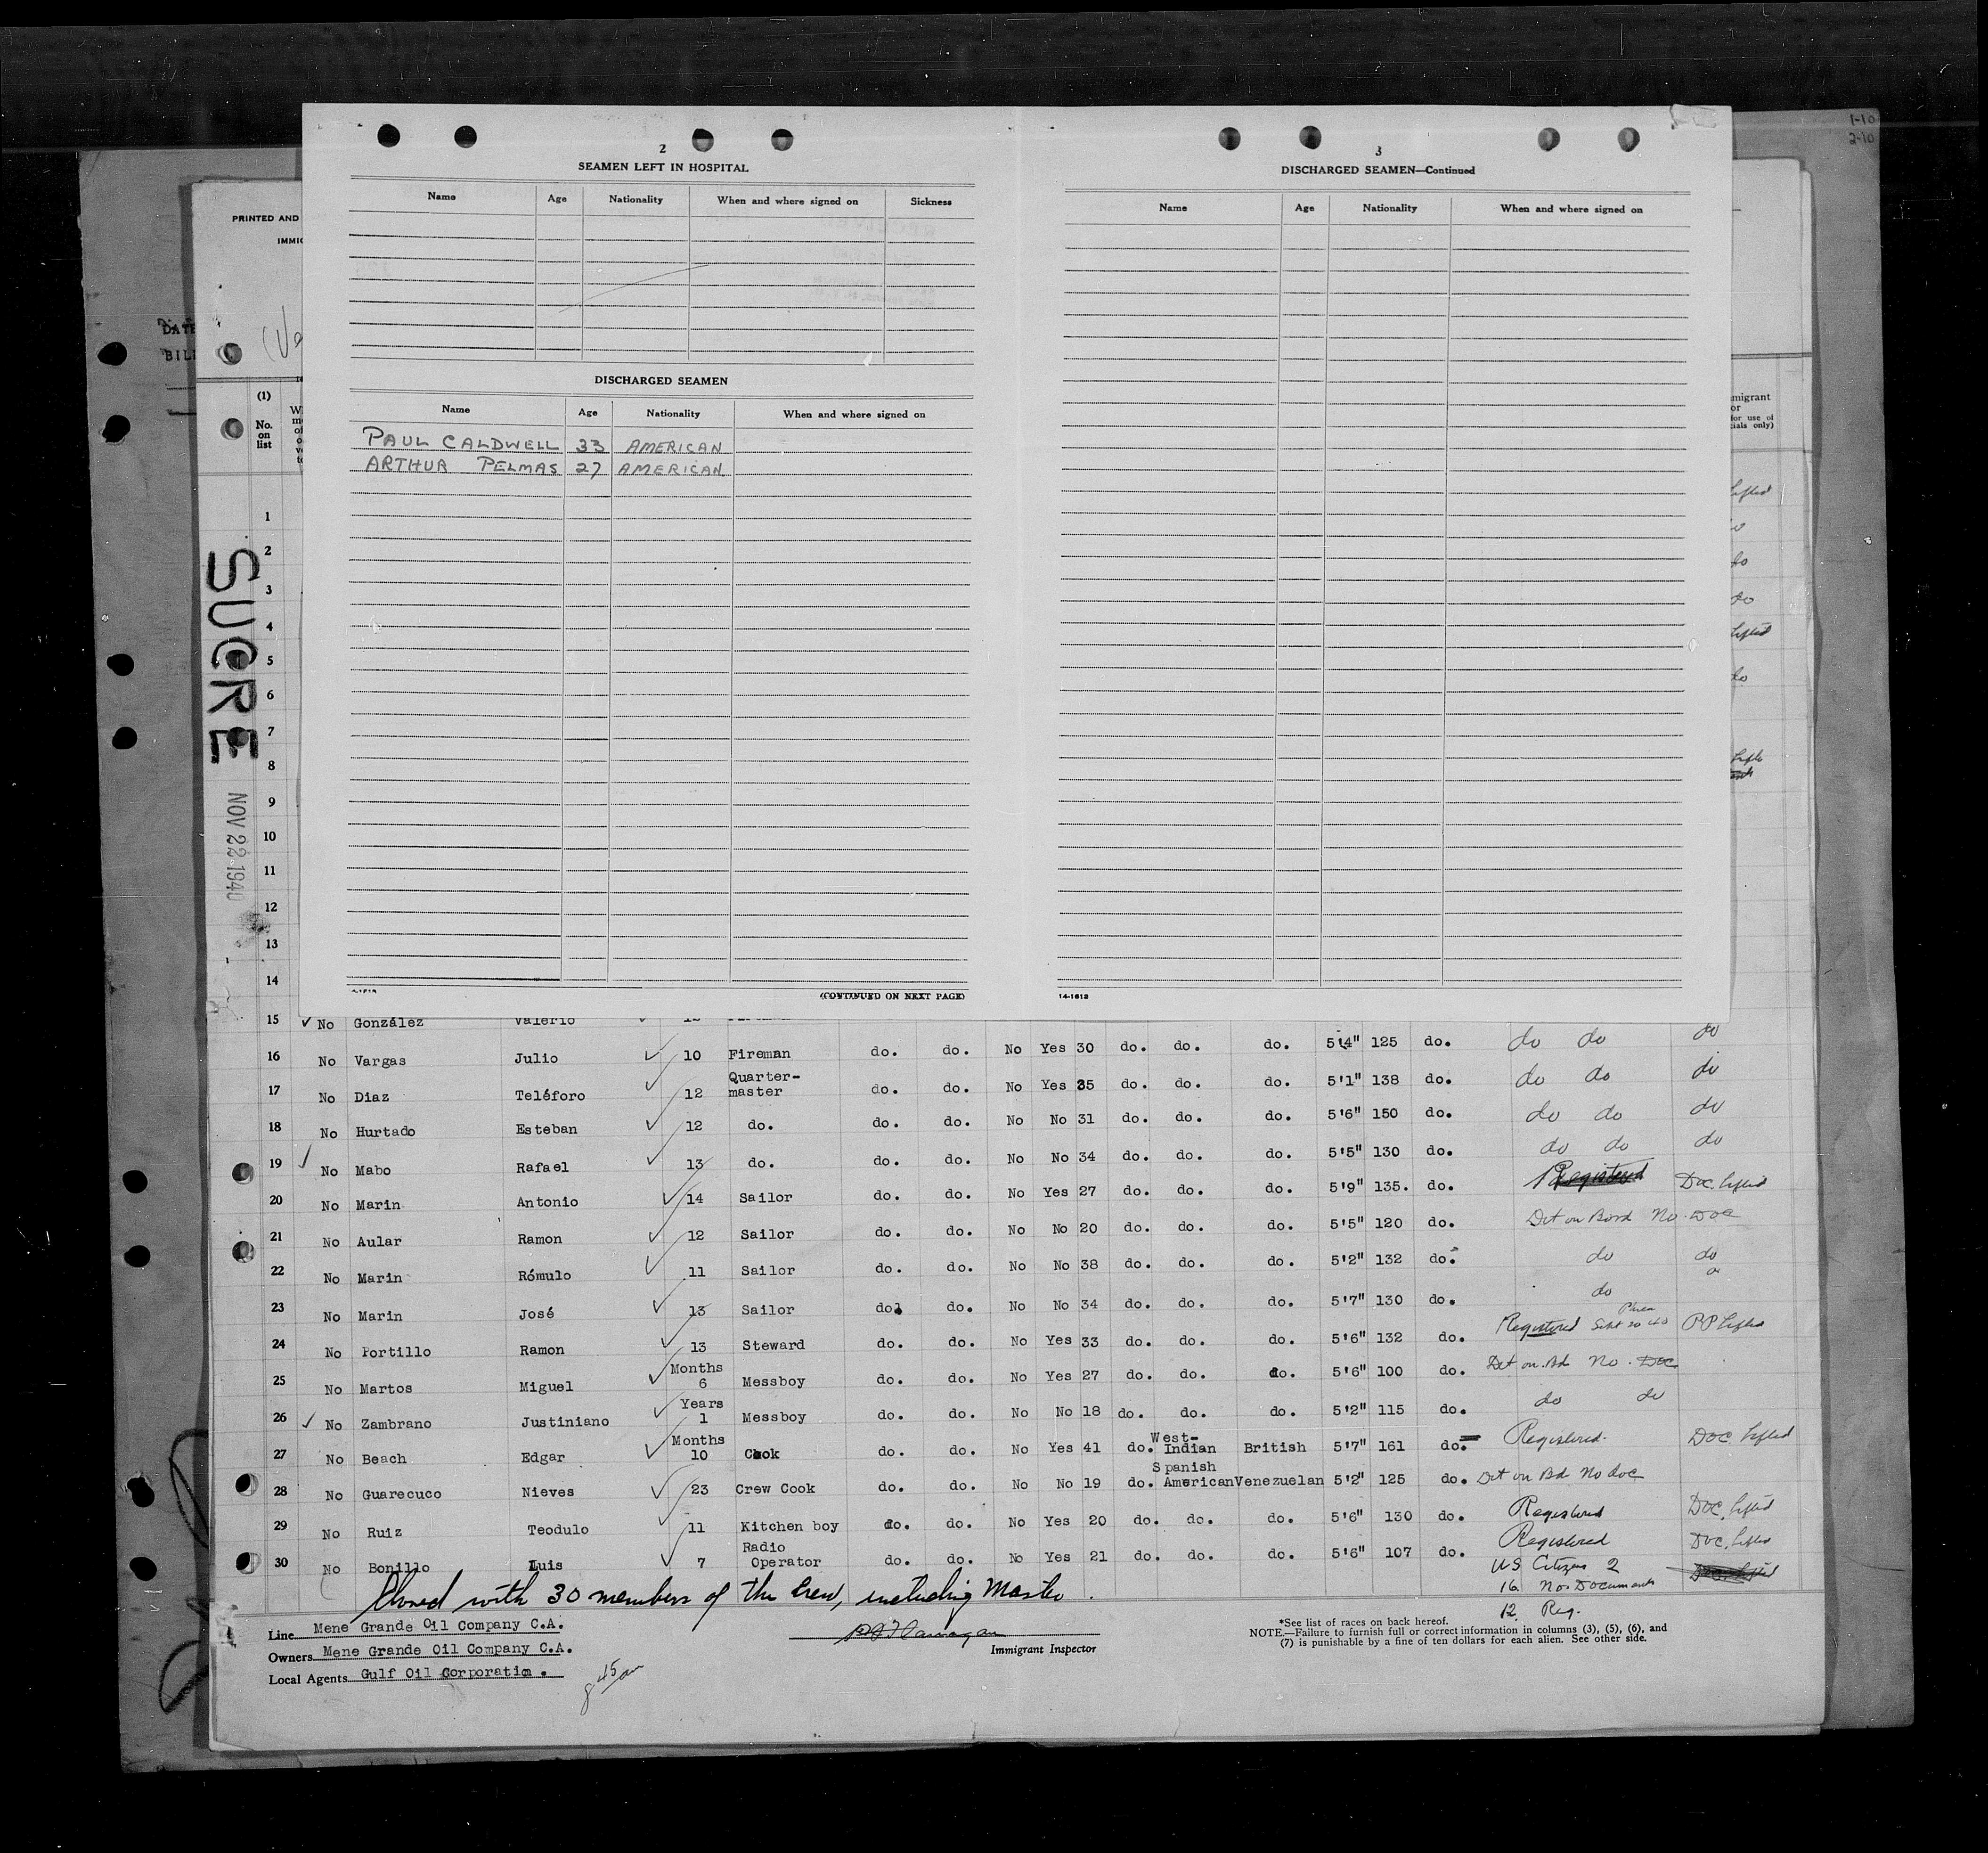 1-10
2-10
2
SEAMEN LEFT IN HOSPITAL
Name Age Nationality When and where signed on Sickness
DISCHARGED SEAMEN
Name Age Nationality When and where signed on
PAUL CALDWELL 33 AMERICAN
ARTHUR PELMAS 27 AMERICAN
(CONTINUED ON NEXT PAGE)
3
DISCHARGED SEAMEN—Continued
Name Age Nationality When and where signed on
14-1612
PRINTED AND
IMMIG
DATE
BILL
(1)
No.
on
list
migrant
or
for use of
cials only)
lifted
do
do
lifted
do
SUCRE
NOV 22 1940
1
2
3
4
5
6
7
8
9
10
11
12
13
14
15 ✓ No González Valerio do
16 No Vargas Julio ✓ 10 Fireman do. do. No Yes 30 do. do. do. 5'4" 125 do. do do do
17 No Diaz Teléforo ✓ 12 Quarter-master do. do. No Yes 35 do. do. do. 5'1" 138 do. do do do
18 No Hurtado Esteban ✓ 12 do. do. do. No No 31 do. do. do. 5'6" 150 do. do do do
19 ✓ No Mabo Rafael ✓ 13 do. do. do. No No 34 do. do. do. 5'5" 130 do. do do do
20 No Marin Antonio ✓ 14 Sailor do. do. No Yes 27 do. do. do. 5'9" 135. do. Registered Doc. lifted
21 No Aular Ramon ✓ 12 Sailor do. do. No No 20 do. do. do. 5'5" 120 do. Det on Bord No. Doc
22 No Marin Rómulo ✓ 11 Sailor do. do. No No 38 do. do. do. 5'2" 132 do. do do
23 No Marin José ✓ 13 Sailor do. do. No No 34 do. do. do. 5'7" 130 do. do
24 No Portillo Ramon ✓ 13 Steward do. do. No Yes 33 do. do. do. 5'6" 132 do. Registered Sept 20 40 PP lifted
25 No Martos Miguel ✓ Months 6 Messboy do. do. No Yes 27 do. do. do. 5'6" 100 do. Det on Bd No. Doc
26 ✓ No Zambrano Justiniano ✓ Years 1 Messboy do. do. No No 18 do. do. do. 5'2" 115 do. do do
27 No Beach Edgar ✓ Months 10 Cook do. do. No Yes 41 do. West-Indian British 5'7" 161 do. Registered. Doc. lifted
28 No Guarecuco Nieves ✓ 23 Crew Cook do. do. No No 19 do. Spanish American Venezuelan 5'2" 125 do. Det on Bd No doc
29 No Ruiz Teodulo 11 Kitchen boy do. do. No Yes 20 do. do. do. 5'6" 130 do. Registered Doc. lifted
30 No Bonillo Luis ✓ 7 Radio Operator do. do. No Yes 21 do. do. do. 5'6" 107 do. Registered Doc. lifted
US Citizens 2
16 No Documents
12 Reg.
Closed with 30 members of the crew, including Master.
Line Mene Grande Oil Company C.A.
Owners Mene Grande Oil Company C.A.
Local Agents Gulf Oil Corporatio .
8 45 am
Immigrant Inspector
*See list of races on back hereof.
NOTE.—Failure to furnish full or correct information in columns (3), (5), (6), and
(7) is punishable by a fine of ten dollars for each alien. See other side.